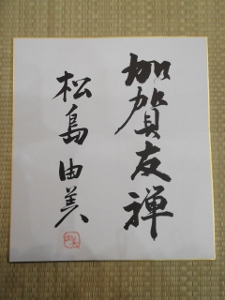 加賀友禅
松島由美